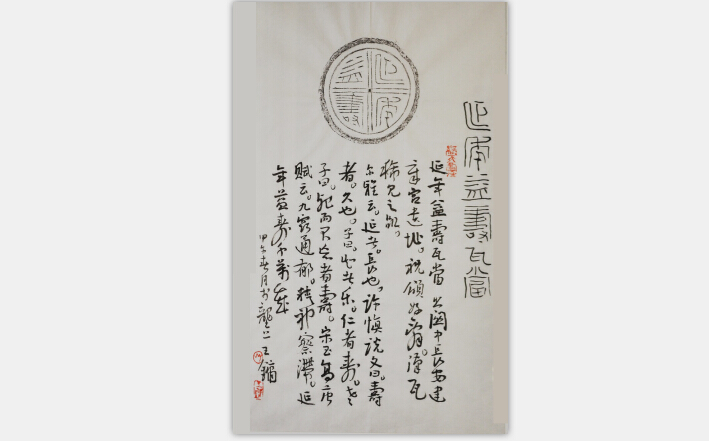 延年益壽
延年益壽瓦當
延年益壽瓦當 出關中長安建
章宮遺址。祝頌好辭。漢瓦
稀見之
尔雅云。延者。長也。許慎說文曰。壽
者。久也。子曰。知者乐。仁者寿。老
子曰。死而不亡者壽。宋玉高唐
賦云。九竅通郁。精神察滯。延
年益寿千萬歲
甲午春月於龍上王鏞